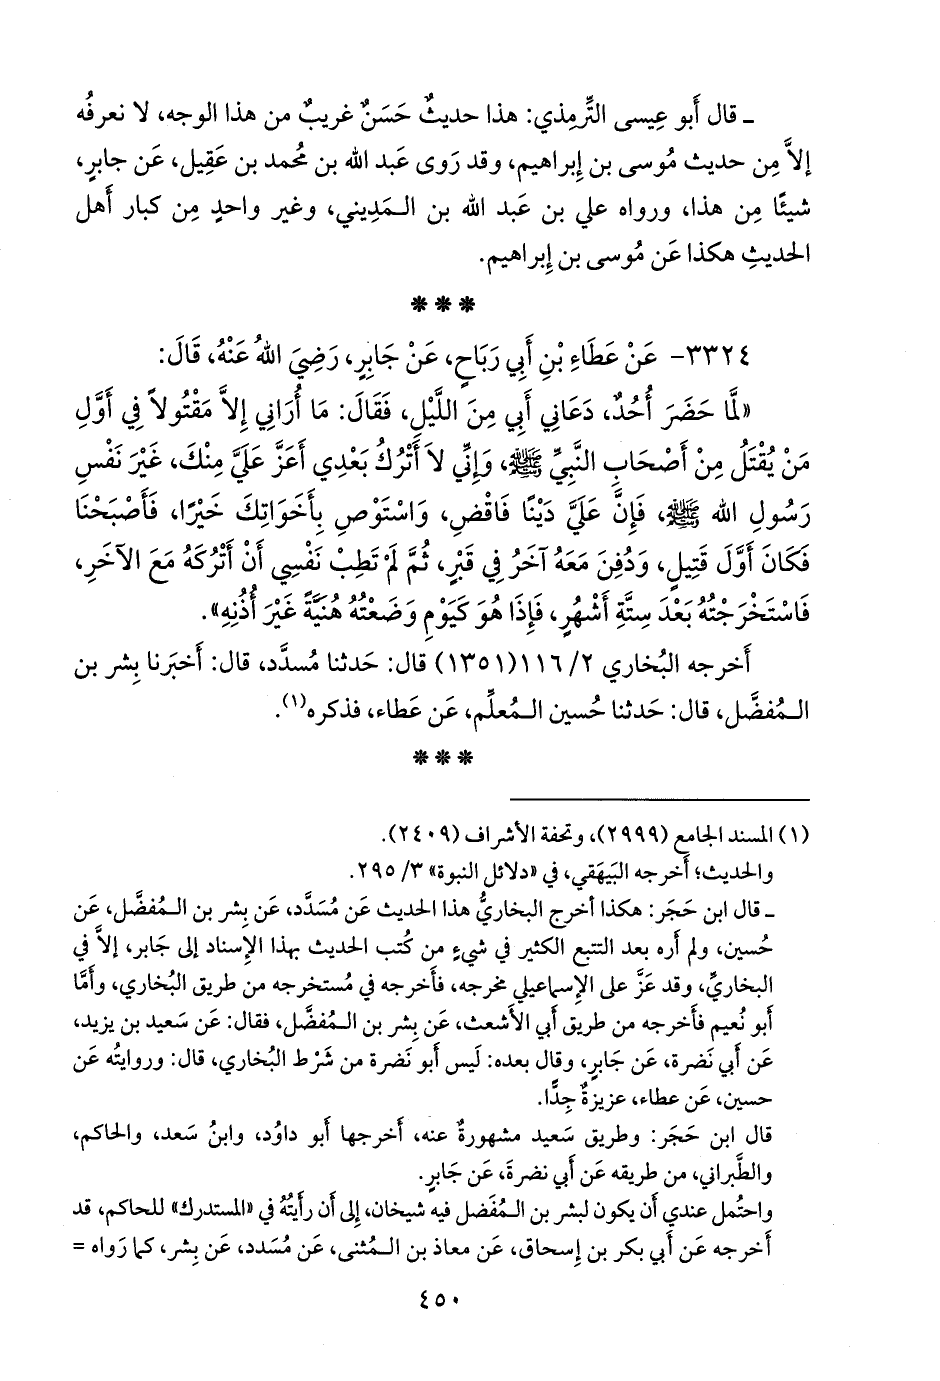 ـ قال أَبو عِيسى التِّرمِذي: هذا حديثٌ حَسَنٌ غريبٌ من هذا الوجه، لا نعرفُه
إلاَّ مِن حديث مُوسى بن إِبراهيم، وقد رَوى عَبد الله بن مُحمد بن عَقِيل، عَن جابرٍ،
شيئًا مِن هذا، ورواه علي بن عَبد الله بن الـمَدِيني، وغير واحدٍ مِن كبار أَهل
الحديثِ هكذا عَن مُوسى بن إِبراهيم.
* * *
٣٣٢٤- عَنْ عَطَاءِ بْنِ أَبِي رَبَاحٍ، عَنْ جَابِرٍ، رَضِيَ اللهُ عَنْهُ، قَالَ:
«لَمَّا حَضَرَ أُحُدٌ، دَعَانِي أَبِي مِنَ اللَّيْلِ، فَقَالَ: مَا أُرَانِي إِلاَّ مَقْتُولاً فِي أَوَّلِ
مَنْ يُقْتَلُ مِنْ أَصْحَابِ النَّبِيِّ ﷺ، وَإِنِّي لاَ أَتْرُكُ بَعْدِي أَعَزَّ عَلَيَّ مِنْكَ، غَيْرَ نَفْسِ
رَسُولِ الله ﷺ، فَإِنَّ عَلَيَّ دَيْنًا فَاقْضِ، وَاسْتَوْصِ بِأَخَوَاتِكَ خَيْرًا، فَأَصْبَحْنَا
فَكَانَ أَوَّلَ قَتِيلٍ، وَدُفِنَ مَعَهُ آخَرُ فِي قَبْرٍ، ثُمَّ لَمْ تَطِبْ نَفْسِي أَنْ أَتْرُكَهُ مَعَ الآخَرِ،
فَاسْتَخْرَجْتُهُ بَعْدَ سِتَّةِ أَشْهُرٍ، فَإِذَا هُوَ كَيَوْمِ وَضَعْتُهُ هُنَيَّةً غَيْرَ أُذُنِهِ».
أَخرجه البُخاري ٢/ ١١٦(١٣٥١) قال: حَدثنا مُسدَّد، قال: أَخبَرنا بِشر بن
الـمُفضَّل، قال: حَدثنا حُسين الـمُعلِّم، عَن عَطاء، فذكره(١).
* * *
(١) المسند الجامع (٢٩٩٩)، وتحفة الأشراف (٢٤٠٩).
والحديث؛ أَخرجه البَيهَقي، في «دلائل النبوة» ٣/ ٢٩٥.
ـ قال ابن حَجَر: هكذا أخرج البخاريُّ هذا الحديث عَن مُسَدَّد، عَن بِشر بن الـمُفضَّل، عَن
حُسين، ولم أره بعد التتبع الكثير في شيءٍ من كُتب الحديث بهذا الإِسناد إلى جَابر، إلاَّ في
البخاريِّ، وقد عَزَّ على الإِسماعيلي مخرجه، فأَخرجه في مُستخرجه من طريق البُخاري، وأَمَّا
أَبو نُعيم فأَخرجه من طريق أَبي الأَشعث، عَن بِشر بن الـمُفضَّل، فقال: عَن سَعيد بن يزيد،
عَن أَبي نَضرة، عَن جَابرٍ، وقال بعده: لَيس أَبو نَضرة من شَرْط البُخاري، قال: وروايتُه عَن
حسين، عَن عطاء، عزيزةٌ جِدًّا.
قال ابن حَجَر: وطريق سَعيد مشهورةٌ عنه، أَخرجها أَبو داوُد، وابنُ سَعد، والحاكم،
والطَّبراني، من طريقه عَن أَبي نضرةَ، عَن جَابرٍ.
واحتُمل عندي أَن يكون لبِشر بن الـمُفَضل فيه شيخان، إِلى أَن رأَيتُهُ في «المستدرك» للحاكم، قد
أَخرجه عَن أَبي بكر بن إِسحاق، عَن معاذ بن الـمُثنى، عَن مُسَدد، عَن بِشر، كما رَواه =
٤٥٠